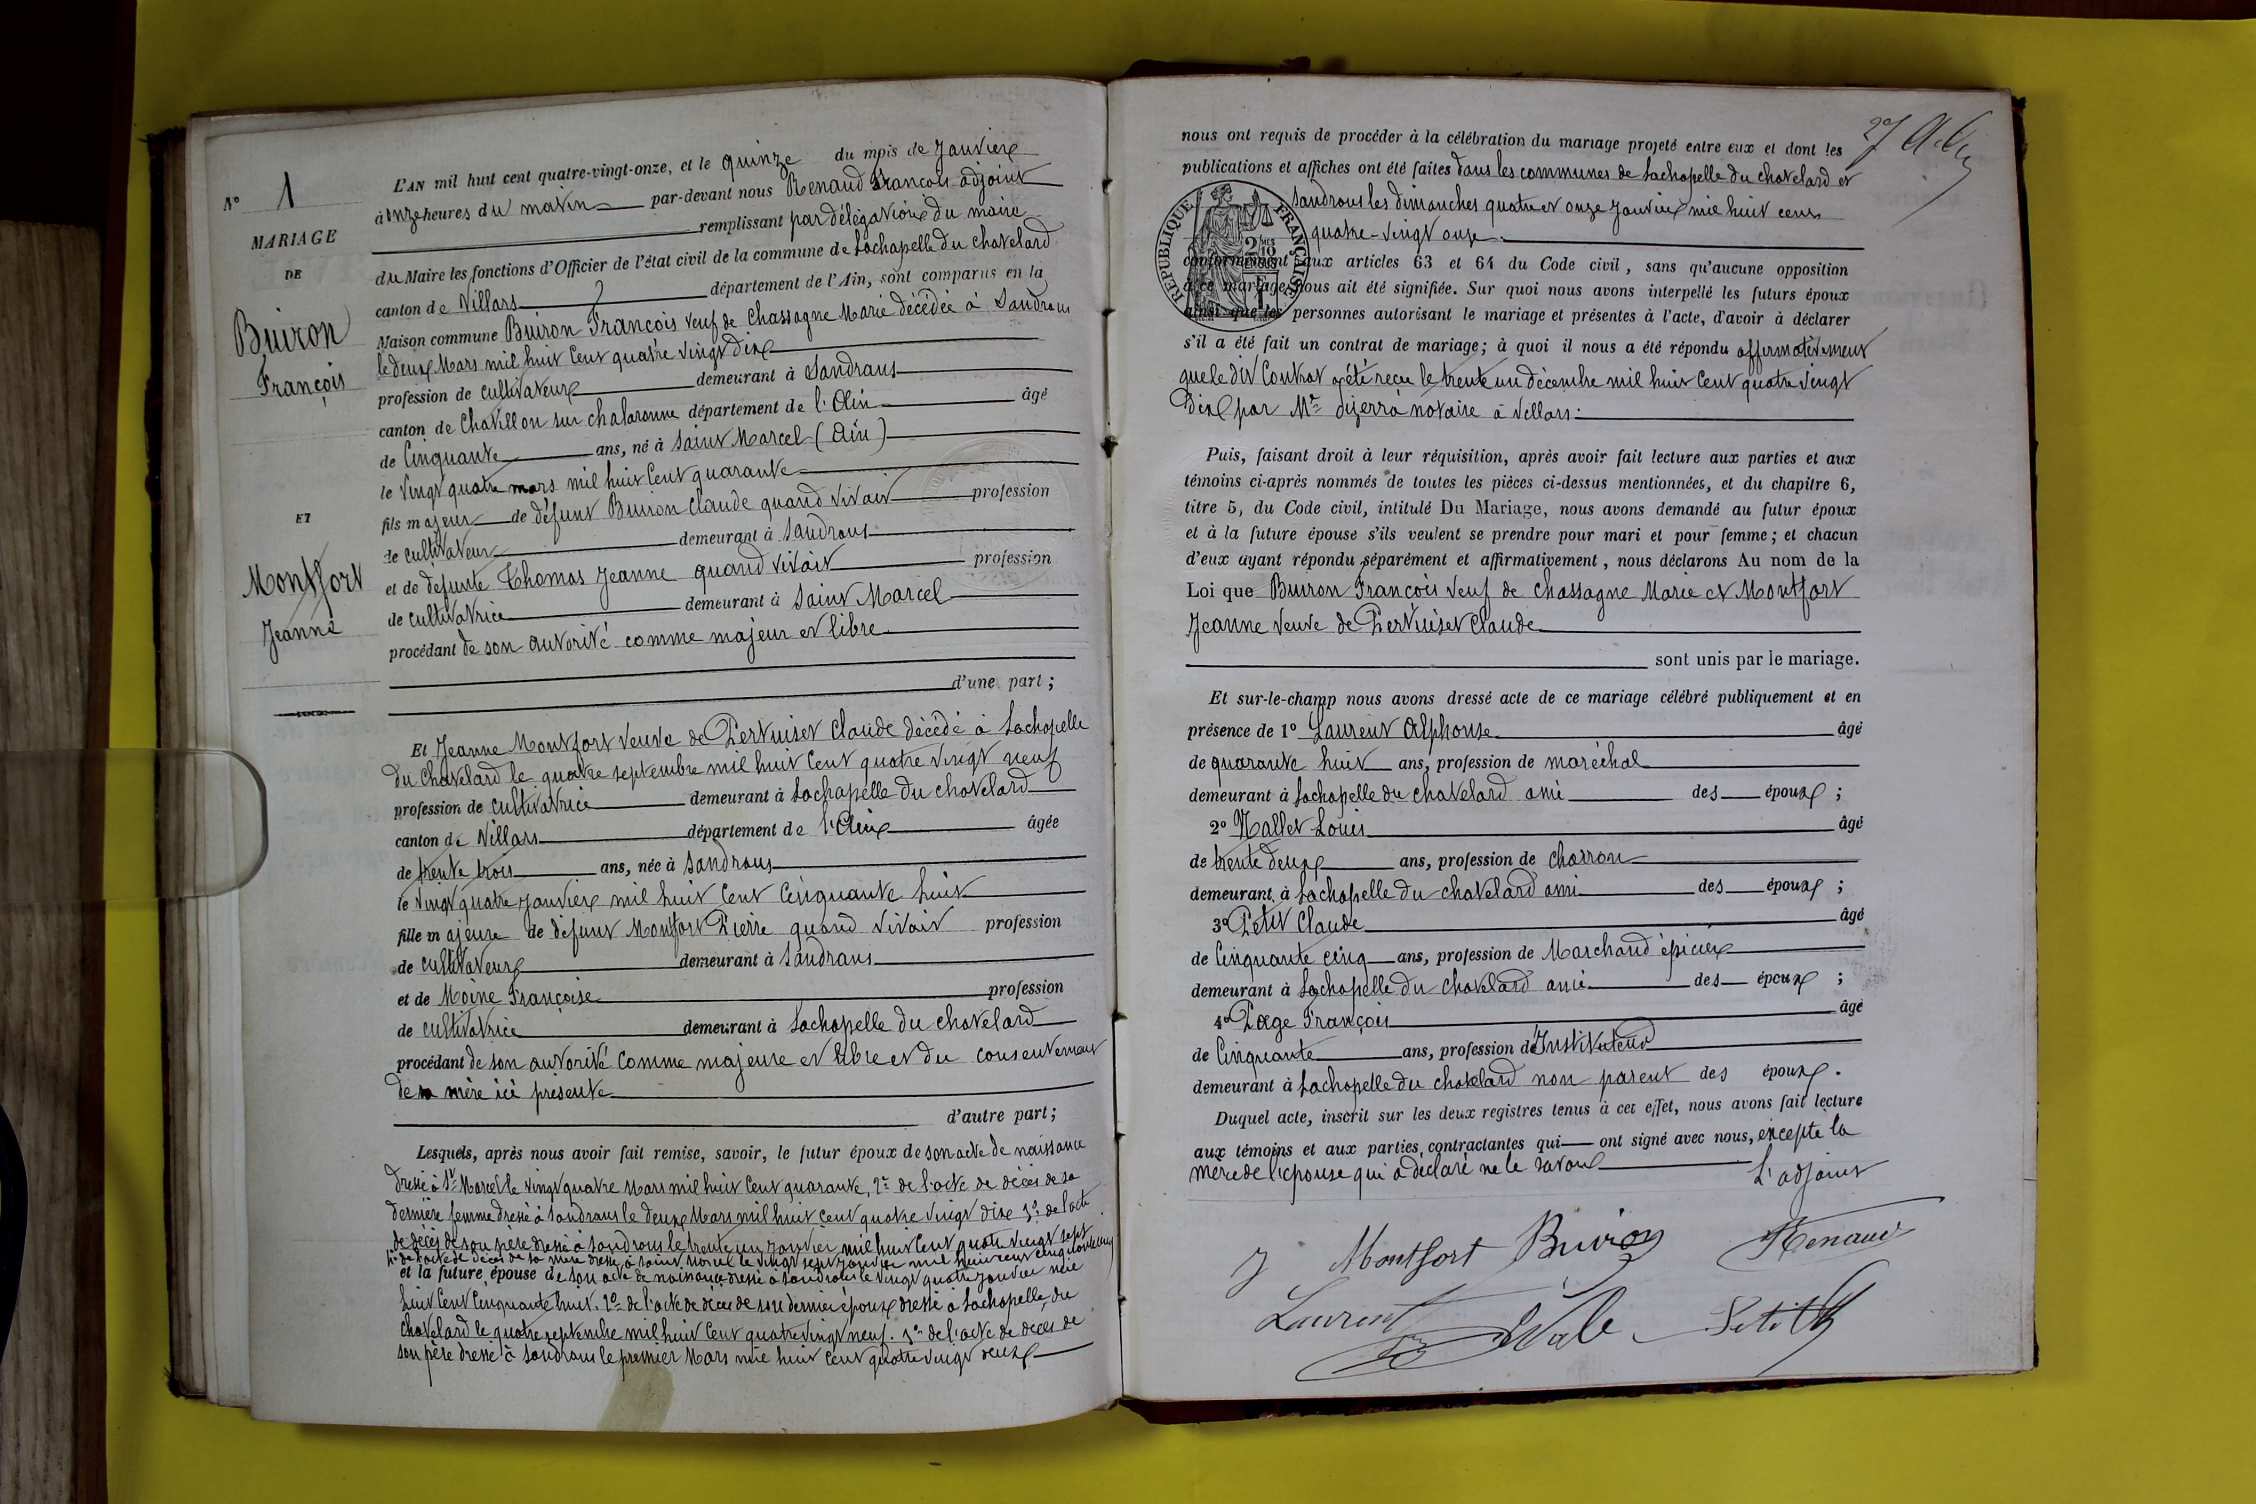 N° 1
MARIAGE
DE
Buiron
François
ET
Montfort
Jeanne
L'AN mil huit cent quatre-vingt-onze, et le quinze du mois de Janvier
à onze heures du matin par-devant nous Renaud François adjoint
remplissant par délégation du maire
du Maire les fonctions d'Officier de l'état civil de la commune de Lachapelle du chatelard
canton de Villars département de l'Ain, sont comparus en la
Maison commune Buiron François veuf de Chassagne Marie décédée à Sandrans
le deux Mars mil huit cent quatre vingt dix
profession de cultivateur demeurant à Sandrans
canton de Chatillon sur chalaronne département de l'Ain âgé
de Cinquante ans, né à Saint Marcel (Ain)
le vingt quatre mars mil huit cent quarante
fils majeur de défunt Buiron Claude quand vivait profession
de cultivateur demeurant à Sandrans
et de defunte Thomas Jeanne quand vivait profession
de cultivatrice demeurant à Saint Marcel
procédant de son autorité comme majeur et libre
d'une part ;
Et Jeanne Montfort veuve de Pertuiset Claude décédé à Lachapelle
du Chatelard le quatre septembre mil huit cent quatre vingt neuf
profession de cultivatrice demeurant à Lachapelle du chatelard
canton de Villars département de l'Ain âgée
de trente trois ans, née à Sandrans
le vingt quatre janvier mil huit cent cinquante huit
fille majeure de défunt Montfort Pierre quand vivait profession
de cultivateur demeurant à Sandrans
et de Moine Françoise profession
de cultivatrice demeurant à Lachapelle du chatelard
procédant de son autorité comme majeure et libre et du consentement
de sa mère ici présente
d'autre part ;
Lesquels, après nous avoir fait remise, savoir, le futur époux de son acte de naissance
dressé à St Marcel le vingt quatre Mars mil huit cent quarante, 2° de l'acte de décès de sa
dernière femme dressé à Sandrans le deux Mars mil huit cent quatre vingt dix 3° de l'acte
de décès de son père dressé à Sandrans le trente un janvier mil huit cent quatre vingt sept
4° de l'acte de décès de sa mère dressé à Saint Marcel le vingt sept janvier mil huit cent cinquante
et la future épouse de son acte de naissance dressé à Sandrans le vingt quatre janvier mil
huit cent cinquante huit. 2° de l'acte de décès de son dernier époux dressé à Lachapelle du
chatelard le quatre septembre mil huit cent quatre vingt neuf. 3° de l'acte de décès de
son père dressé à Sandrans le premier Mars mil huit cent quatre vingt deux
nous ont requis de procéder à la célébration du mariage projeté entre eux et dont les
publications et affiches ont été faites dans les communes de Lachapelle du chatelard et
Sandrans les dimanches quatre et onze janvier mil huit cent
quatre-vingt onze.
RÉPUBLIQUE FRANÇAISE
conformément aux articles 63 et 64 du Code civil, sans qu'aucune opposition
à ce mariage nous ait été signifiée. Sur quoi nous avons interpellé les futurs époux
ainsi que les personnes autorisant le mariage et présentes à l'acte, d'avoir à déclarer
s'il a été fait un contrat de mariage; à quoi il nous a été répondu affirmativement
que le dit Contrat a été reçu le trente un décembre mil huit cent quatre vingt
Dix par Me notaire à Villars.
Puis, faisant droit à leur réquisition, après avoir fait lecture aux parties et aux
témoins ci-après nommés de toutes les pièces ci-dessus mentionnées, et du chapitre 6,
titre 5, du Code civil, intitulé Du Mariage, nous avons demandé au futur époux
et à la future épouse s'ils veulent se prendre pour mari et pour femme ; et chacun
d'eux ayant répondu séparément et affirmativement, nous déclarons Au nom de la
Loi que Buiron François veuf de Chassagne Marie et Montfort
Jeanne veuve de Pertuiset Claude
sont unis par le mariage.
Et sur-le-champ nous avons dressé acte de ce mariage célébré publiquement et en
présence de 1° Laurent Alphonse âgé
de quarante huit ans, profession de maréchal
demeurant à Lachapelle du chatelard ami des époux ;
2° Mallet Louis âgé
de trente deux ans, profession de charron
demeurant à Lachapelle du chatelard ami des époux ;
3° Petit Claude âgé
de Cinquante cinq ans, profession de Marchand épicier
demeurant à Lachapelle du chatelard ami des époux ;
4° Page François âgé
de Cinquante ans, profession d'Instituteur
demeurant à Lachapelle du chatelard non parent des époux.
Duquel acte, inscrit sur les deux registres tenus à cet effet, nous avons fait lecture
aux témoins et aux parties contractantes qui ont signé avec nous, excepté la
mère de l'épouse qui a déclaré ne le savoir
L'adjoint
J Montfort Buiron Renaud
Laurent Petit